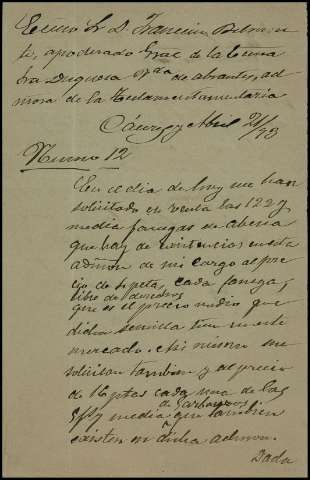 Excmo Sr D. Francisco Belmon
te, apoderado Gral de la Excma
Sra Duquesa de Abrantes, ad
mora de la Testamentaria
Cáceres y Abril 21/93
Numo 12
En el dia de hoy me han
solicitado en venta las 122 y
media fanegas de abena
que hay de existencias en esta
admon de mi cargo al pre
cio de 6 peta, cada fanega,
libre de derechos
que es el precio medio que
dicha semilla tiene en este
mercado. Asi mismo me
solicitan tambien y al precio
de 16 ptas cada una de las
y media de garbanzos que tambien
existen en dicha admon.
Dada